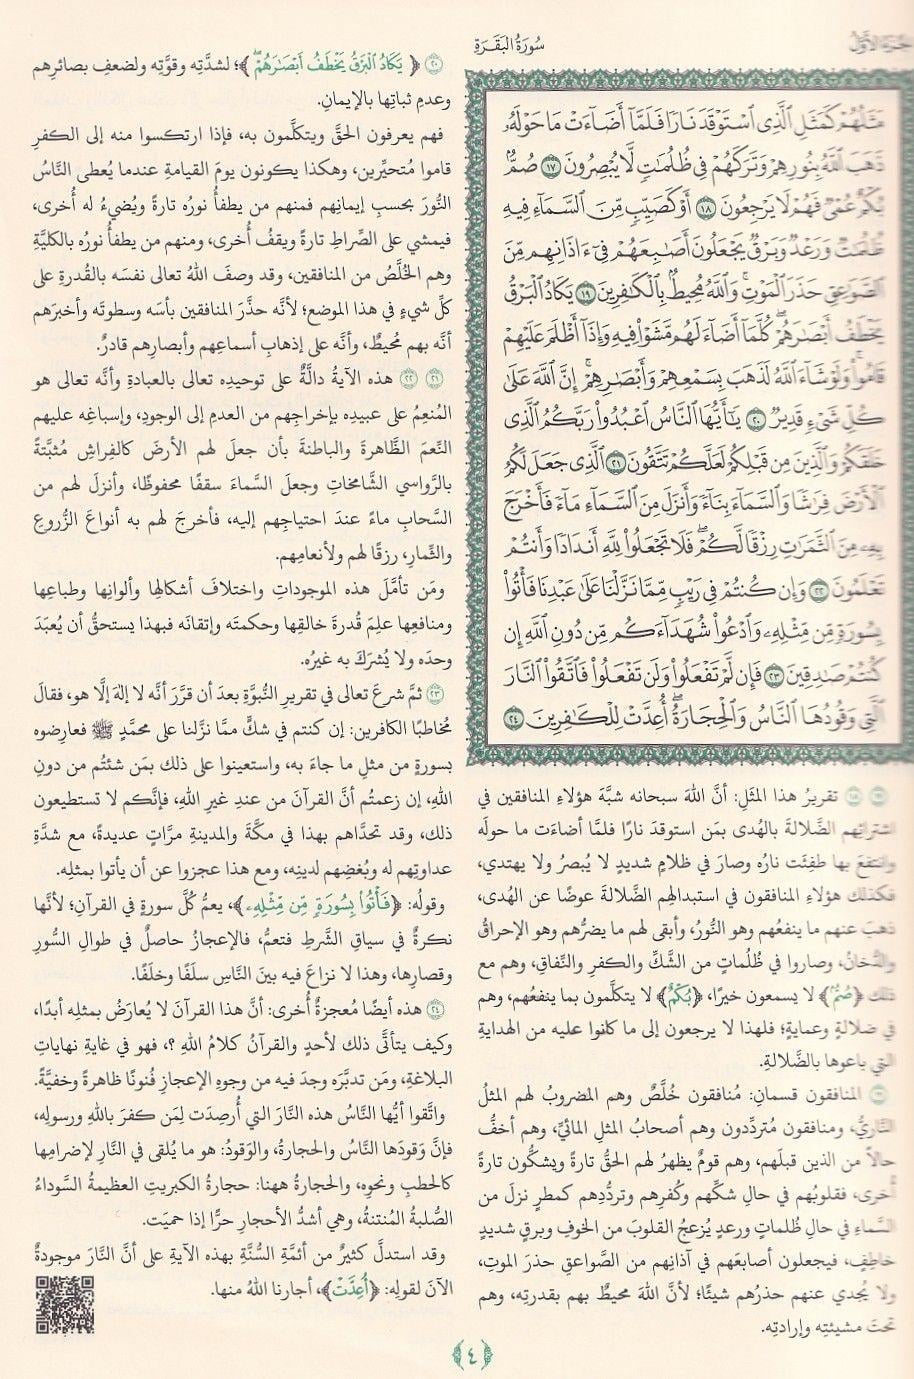 الجزء الأول
سُورَةُ البَقَرَةِ
مَثَلُهُمْ كَمَثَلِ ٱلَّذِى ٱسْتَوْقَدَ نَارًا فَلَمَّآ أَضَآءَتْ مَا حَوْلَهُۥ
ذَهَبَ ٱللَّهُ بِنُورِهِمْ وَتَرَكَهُمْ فِى ظُلُمَٰتٍ لَّا يُبْصِرُونَ ١٧ صُمٌّۢ
بُكْمٌ عُمْىٌ فَهُمْ لَا يَرْجِعُونَ ١٨ أَوْ كَصَيِّبٍ مِّنَ ٱلسَّمَآءِ فِيهِ
ظُلُمَٰتٌ وَرَعْدٌ وَبَرْقٌ يَجْعَلُونَ أَصَٰبِعَهُمْ فِىٓ ءَاذَانِهِم مِّنَ
ٱلصَّوَٰعِقِ حَذَرَ ٱلْمَوْتِ ۚ وَٱللَّهُ مُحِيطٌۢ بِٱلْكَٰفِرِينَ ١٩ يَكَادُ ٱلْبَرْقُ
يَخْطَفُ أَبْصَٰرَهُمْ ۖ كُلَّمَآ أَضَآءَ لَهُم مَّشَوْا۟ فِيهِ وَإِذَآ أَظْلَمَ عَلَيْهِمْ
قَامُوا۟ ۚ وَلَوْ شَآءَ ٱللَّهُ لَذَهَبَ بِسَمْعِهِمْ وَأَبْصَٰرِهِمْ ۚ إِنَّ ٱللَّهَ عَلَىٰ
كُلِّ شَىْءٍ قَدِيرٌ ٢٠ يَٰٓأَيُّهَا ٱلنَّاسُ ٱعْبُدُوا۟ رَبَّكُمُ ٱلَّذِى
خَلَقَكُمْ وَٱلَّذِينَ مِن قَبْلِكُمْ لَعَلَّكُمْ تَتَّقُونَ ٢١ ٱلَّذِى جَعَلَ لَكُمُ
ٱلْأَرْضَ فِرَٰشًا وَٱلسَّمَآءَ بِنَآءً وَأَنزَلَ مِنَ ٱلسَّمَآءِ مَآءً فَأَخْرَجَ
بِهِۦ مِنَ ٱلثَّمَرَٰتِ رِزْقًا لَّكُمْ ۖ فَلَا تَجْعَلُوا۟ لِلَّهِ أَندَادًا وَأَنتُمْ
تَعْلَمُونَ ٢٢ وَإِن كُنتُمْ فِى رَيْبٍ مِّمَّا نَزَّلْنَا عَلَىٰ عَبْدِنَا فَأْتُوا۟
بِسُورَةٍ مِّن مِّثْلِهِۦ وَٱدْعُوا۟ شُهَدَآءَكُم مِّن دُونِ ٱللَّهِ إِن
كُنتُمْ صَٰدِقِينَ ٢٣ فَإِن لَّمْ تَفْعَلُوا۟ وَلَن تَفْعَلُوا۟ فَٱتَّقُوا۟ ٱلنَّارَ
ٱلَّتِى وَقُودُهَا ٱلنَّاسُ وَٱلْحِجَارَةُ ۖ أُعِدَّتْ لِلْكَٰفِرِينَ ٢٤
تقريرُ هذا المثَلِ: أنَّ اللهَ سبحانه شبَّهَ هؤلاءِ المنافقين في
اشترائِهم الضَّلالةَ بالهُدى بمَن استوقدَ نارًا فلمَّا أضاءَت ما حولَه
وانتفعَ بها طفِئَت نارُه وصارَ في ظلامٍ شديدٍ لا يُبصرُ ولا يهتدي،
فكذلك هؤلاءِ المنافقون في استبدالِهم الضَّلالةَ عوضًا عن الهُدى،
ذهبَ عنهم ما ينفعُهم وهو النُّورُ، وأبقى لهم ما يضرُّهم وهو الإحراقُ
والدُّخانُ، وصاروا في ظُلُماتٍ من الشَّكِّ والكفرِ والنِّفاقِ، وهم مع
ذلك ﴿صُمٌّ﴾ لا يسمعون خيرًا، ﴿بُكْمٌ﴾ لا يتكلَّمون بما ينفعُهم، وهم
في ضلالةٍ وعمايةٍ؛ فلهذا لا يرجعون إلى ما كانوا عليه من الهدايةِ
التي باعوها بالضَّلالةِ.
المنافقون قسمانِ: مُنافقون خُلَّصٌ وهم المضروبُ لهم المثلُ
النَّاريُّ، ومنافقون مُتردِّدون وهم أصحابُ المثلِ المائيِّ، وهم أخفُّ
حالًا من الذين قبلَهم، وهم قومٌ يظهرُ لهم الحقُّ تارةً ويشكُّون تارةً
أُخرى، فقلوبُهم في حالِ شكِّهم وكُفرِهم وتردُّدِهم كمطرٍ نزلَ من
السَّماءِ في حالِ ظُلماتٍ ورعدٍ يُزعجُ القلوبَ من الخوفِ وبرقٍ شديدٍ
خاطِفٍ، فيجعلون أصابعَهم في آذانِهم من الصَّواعقِ حذرَ الموتِ،
ولا يُجدي عنهم حذرُهم شيئًا؛ لأنَّ اللهَ محيطٌ بهم بقدرتِه، وهم
تحتَ مشيئتِه وإرادتِه.
٢٠ ﴿يَكَادُ ٱلْبَرْقُ يَخْطَفُ أَبْصَٰرَهُمْ ۖ﴾؛ لشدَّتِه وقوَّتِه ولضعفِ بصائرِهم
وعدمِ ثباتِها بالإيمانِ.
فهم يعرفون الحقَّ ويتكلَّمون به، فإذا ارتكسوا منه إلى الكفرِ
قاموا مُتحيِّرين، وهكذا يكونون يومَ القيامةِ عندما يُعطى النَّاسُ
النُّورَ بحسبِ إيمانِهم فمنهم من يطفأُ نورُه تارةً ويُضيءُ له أُخرى،
فيمشي على الصِّراطِ تارةً ويقفُ أُخرى، ومنهم من يطفأُ نورُه بالكليَّةِ
وهم الخُلَّصُ من المنافقين، وقد وصفَ اللهُ تعالى نفسَه بالقُدرةِ على
كلِّ شيءٍ في هذا الموضعِ؛ لأنَّه حذَّرَ المنافقين بأسَه وسطوتَه وأخبرَهم
أنَّه بهم مُحيطٌ، وأنَّه على إذهابِ أسماعِهم وأبصارِهم قادرٌ.
٢١ ٢٢ هذه الآيةُ دالَّةٌ على توحيدِه تعالى بالعبادةِ وأنَّه تعالى هو
المُنعِمُ على عبيدِه بإخراجِهم من العدمِ إلى الوجودِ، وإسباغِه عليهم
النِّعمَ الظَّاهرةَ والباطنةَ بأن جعلَ لهم الأرضَ كالفِراشِ مُثبَّتةً
بالرَّواسي الشَّامخاتِ وجعلَ السَّماءَ سقفًا محفوظًا، وأنزلَ لهم من
السَّحابِ ماءً عندَ احتياجِهم إليه، فأخرجَ لهم به أنواعَ الزُّروعِ
والثِّمارِ، رزقًا لهم ولأنعامِهم.
ومَن تأمَّلَ هذه الموجوداتِ واختلافَ أشكالِها وألوانِها وطباعِها
ومنافعِها علِمَ قُدرةَ خالقِها وحكمتَه وإتقانَه فبهذا يستحقُّ أن يُعبَدَ
وحدَه ولا يُشرَكَ به غيرُه.
٢٣ ثمَّ شرعَ تعالى في تقريرِ النُّبوَّةِ بعدَ أن قرَّرَ أنَّه لا إلهَ إلَّا هو، فقالَ
مُخاطبًا الكافرين: إن كنتم في شكٍّ ممَّا نزَّلنا على محمَّدٍ ﷺ فعارِضوه
بسورةٍ من مثلِ ما جاءَ به، واستعينوا على ذلك بمَن شئتُم من دونِ
اللهِ، إن زعمتُم أنَّ القرآنَ من عندِ غيرِ اللهِ، فإنَّكم لا تستطيعون
ذلك، وقد تحدَّاهم بهذا في مكَّةَ والمدينةِ مرَّاتٍ عديدةً، مع شدَّةِ
عداوتِهم له وبُغضِهم لدينِه، ومع هذا عجزوا عن أن يأتوا بمثلِه.
وقولُه: ﴿فَأْتُوا۟ بِسُورَةٍ مِّن مِّثْلِهِۦ﴾، يعمُّ كُلَّ سورةٍ في القرآنِ؛ لأنَّها
نكرةٌ في سياقِ الشَّرطِ فتعمُّ، فالإعجازُ حاصلٌ في طوالِ السُّورِ
وقصارِها، وهذا لا نزاعَ فيه بينَ النَّاسِ سلَفًا وخلَفًا.
٢٤ هذه أيضًا مُعجزةٌ أُخرى: أنَّ هذا القرآنَ لا يُعارَضُ بمثلِه أبدًا،
وكيف يتأتَّى ذلك لأحدٍ والقرآنُ كلامُ اللهِ ؟، فهو في غايةِ نهاياتِ
البلاغةِ، ومَن تدبَّرَه وجدَ فيه من وجوهِ الإعجازِ فُنونًا ظاهرةً وخفيَّةً.
واتَّقوا أيُّها النَّاسُ هذه النَّارَ التي أُرصِدَت لمَن كفرَ باللهِ ورسولِه،
فإنَّ وَقودَها النَّاسُ والحجارةُ، والوَقودُ: هو ما يُلقى في النَّارِ لإضرامِها
كالحطبِ ونحوِه، والحجارةُ ههنا: حجارةُ الكبريتِ العظيمةُ السَّوداءُ
الصُّلبةُ المُنتنةُ، وهي أشدُّ الأحجارِ حرًّا إذا حميَت.
وقد استدلَّ كثيرٌ من أئمَّةِ السُّنَّةِ بهذه الآيةِ على أنَّ النَّارَ موجودةٌ
الآنَ لقولِه: ﴿أُعِدَّتْ﴾، أجارنا اللهُ منها.
٤